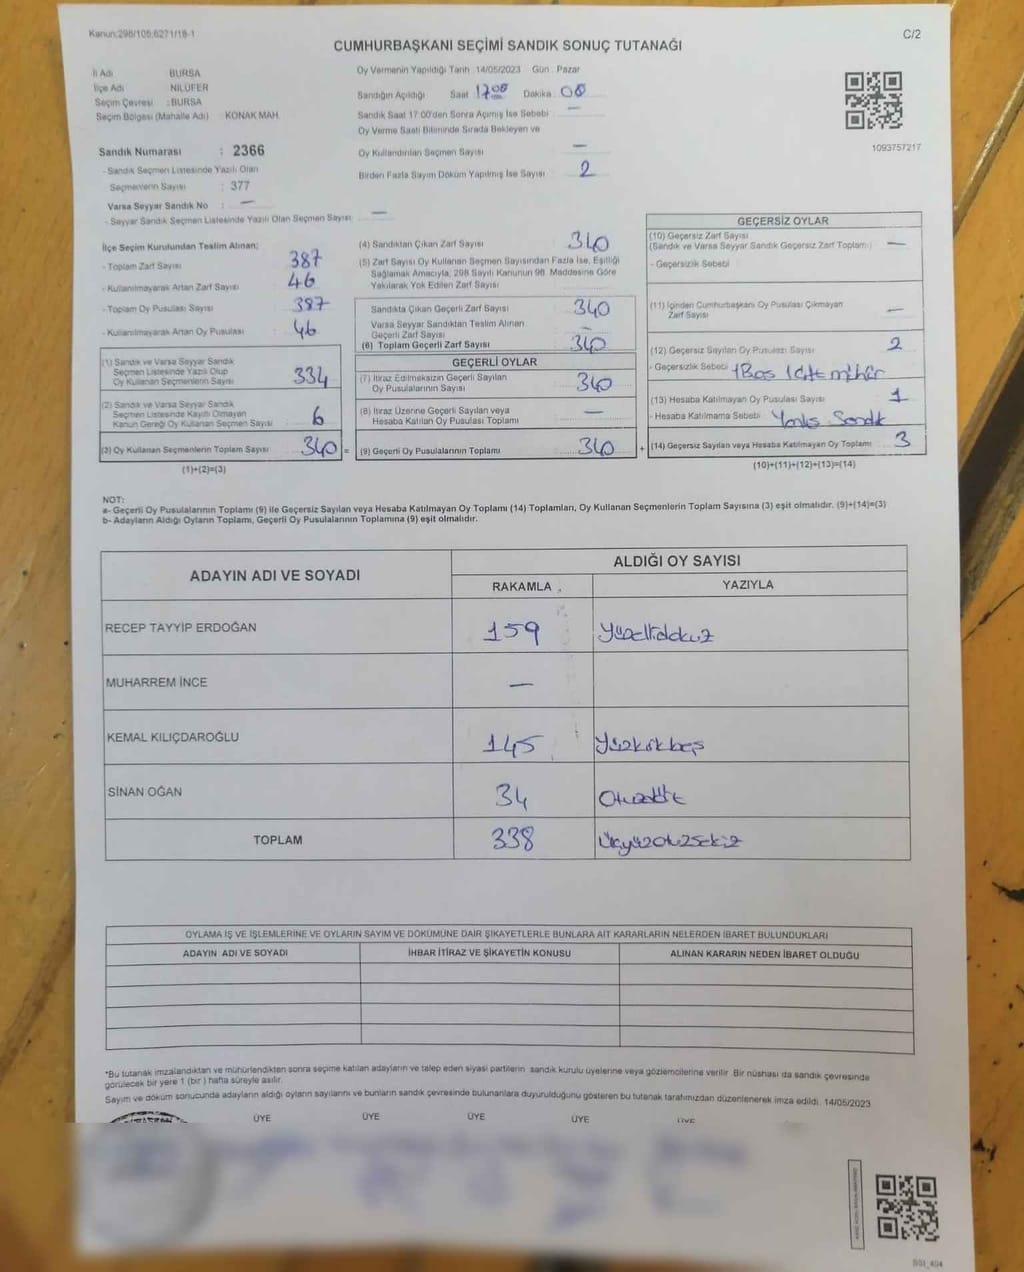 Kanun:298/106:6271/18-1
C/2
CUMHURBAŞKANI SEÇİMİ SANDIK SONUÇ TUTANAĞI
İl Adı BURSA
İlçe Adı NİLÜFER
Seçim Çevresi : BURSA
Seçim Bölgesi (Mahalle Adı) KONAK MAH.
Sandık Numarası : 2366
- Sandık Seçmen Listesinde Yazılı Olan
Seçmenlerin Sayısı : 377
Varsa Seyyar Sandık No : —
- Seyyar Sandık Seçmen Listesinde Yazılı Olan Seçmen Sayısı —
Oy Vermenin Yapıldığı Tarih 14/05/2023 Gün : Pazar
Sandığın Açıldığı Saat 17:00 Dakika : 00
Sandık Saat 17.00'den Sonra Açımış İse Sebebi —
Oy Verme Saati Bitiminde Sırada Bekleyen ve
Oy Kullandırılan Seçmen Sayısı —
Birden Fazla Sayım Döküm Yapılmış İse Sayısı 2
1093757217
İlçe Seçim Kurulundan Teslim Alınan;
- Toplam Zarf Sayısı 387
- Kullanılmayarak Artan Zarf Sayısı 46
- Toplam Oy Pusulası Sayısı 387
- Kullanılmayarak Artan Oy Pusulası 46
(1) Sandık ve Varsa Seyyar Sandık
Seçmen Listesinde Yazılı Olup
Oy Kullanan Seçmenlerin Sayısı 334
(2) Sandık ve Varsa Seyyar Sandık
Seçmen Listesinde Kayıtlı Olmayan
Kanun Gereği Oy Kullanan Seçmen Sayısı 6
(3) Oy Kullanan Seçmenlerin Toplam Sayısı 340 =
(1)+(2)=(3)
(4) Sandıktan Çıkan Zarf Sayısı 340
(5) Zarf Sayısı Oy Kullanan Seçmen Sayısından Fazla İse, Eşitliği
Sağlamak Amacıyla, 298 Sayılı Kanunun 98. Maddesine Göre
Yakılarak Yok Edilen Zarf Sayısı
Sandıkta Çıkan Geçerli Zarf Sayısı 340
Varsa Seyyar Sandıktan Teslim Alınan
Geçerli Zarf Sayısı —
(6) Toplam Geçerli Zarf Sayısı 340
GEÇERLİ OYLAR
(7) İtiraz Edilmeksizin Geçerli Sayılan
Oy Pusulalarının Sayısı 340
(8) İtiraz Üzerine Geçerli Sayılan veya
Hesaba Katılan Oy Pusulası Toplamı —
(9) Geçerli Oy Pusulalarının Toplamı 340 +
GEÇERSİZ OYLAR
(10) Geçersiz Zarf Sayısı
(Sandık ve Varsa Seyyar Sandık Geçersiz Zarf Toplamı) —
- Geçersizlik Sebebi
(11) İçinden Cumhurbaşkanı Oy Pusulası Çıkmayan
Zarf Sayısı —
(12) Geçersiz Sayılan Oy Pusulası Sayısı 2
- Geçersizlik Sebebi 1Boş 1Çift mühür
(13) Hesaba Katılmayan Oy Pusulası Sayısı 1
- Hesaba Katılmama Sebebi Yanlış Sandık
(14) Geçersiz Sayılan veya Hesaba Katılmayan Oy Toplamı 3
(10)+(11)+(12)+(13)=(14)
NOT:
a- Geçerli Oy Pusulalarının Toplamı (9) ile Geçersiz Sayılan veya Hesaba Katılmayan Oy Toplamı (14) Toplamları, Oy Kullanan Seçmenlerin Toplam Sayısına (3) eşit olmalıdır. (9)+(14)=(3)
b- Adayların Aldığı Oyların Toplamı, Geçerli Oy Pusulalarının Toplamına (9) eşit olmalıdır.
ADAYIN ADI VE SOYADI
ALDIĞI OY SAYISI
RAKAMLA YAZIYLA
RECEP TAYYİP ERDOĞAN 159 Yüzellidokuz
MUHARREM İNCE —
KEMAL KILIÇDAROĞLU 145 Yüzkırkbeş
SİNAN OĞAN 34 Otuzdört
TOPLAM 338 Üçyüzotuzsekiz
OYLAMA İŞ VE İŞLEMLERİNE VE OYLARIN SAYIM VE DÖKÜMÜNE DAİR ŞİKAYETLERLE BUNLARA AİT KARARLARIN NELERDEN İBARET BULUNDUKLARI
ADAYIN ADI VE SOYADI İHBAR İTİRAZ VE ŞİKAYETİN KONUSU ALINAN KARARIN NEDEN İBARET OLDUĞU
*Bu tutanak imzalandıktan ve mühürlendikten sonra seçime katılan adayların ve talep eden siyasi partilerin sandık kurulu üyelerine veya gözlemcilerine verilir. Bir nüshası da sandık çevresinde
görülecek bir yere 1 (bir ) hafta süreyle asılır.
Sayım ve döküm sonucunda adayların aldığı oyların sayılarını ve bunların sandık çevresinde bulunanlara duyurulduğunu gösteren bu tutanak tarafımızdan düzenlenerek imza edildi. 14/05/2023
ÜYE ÜYE ÜYE ÜYE ÜYE